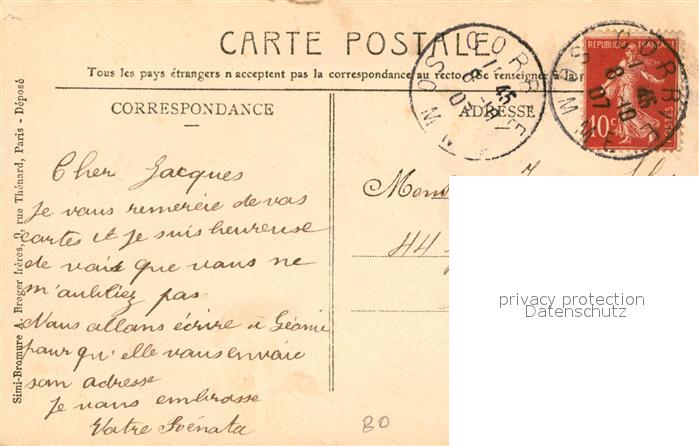 CARTE POSTALE
Tous les pays étrangers n acceptent pas la correspondance au recto. Se renseigner à la
CORRESPONDANCE
ADRESSE
Simi-Bromure A. Breger frères, 9, rue Thénard, Paris - Déposé
REPUBLIQUE FRANÇAISE
10c
POSTES
CORBIE
SOMME
CORBIE
SOMME
Cher Jacques
Je vous remercie de vos
cartes et je suis heureuse
de voir que vous ne
m'oubliez pas
Nous allons écrire à
pour qu'elle vous envoie
son adresse
Je vous embrasse
Votre
44
80
privacy protection
Datenschutz